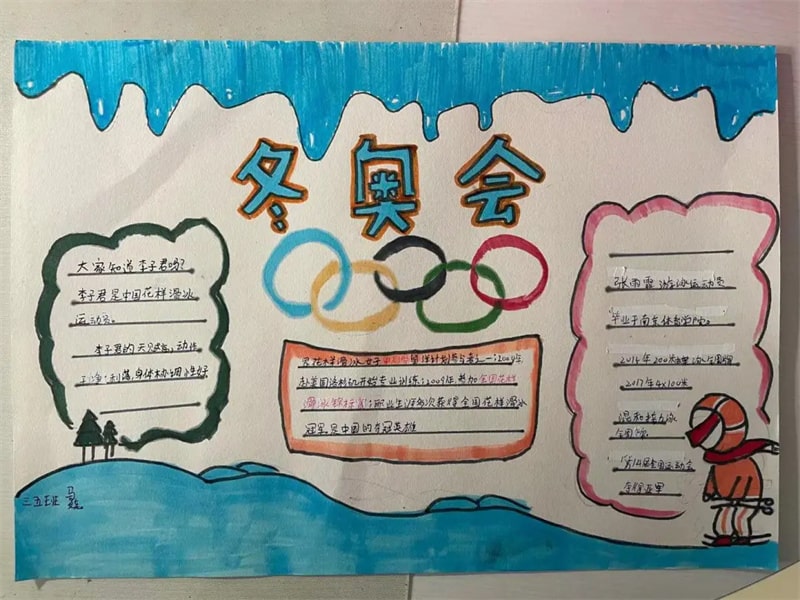 冬奥会
大家知道李子君吗?
李子君是中国花样滑冰
运动员。
李子君的天,动作
干净利落,身体协调性好
花样滑冰女子单人滑留洋计划参与者之一:2009年
赴美国洛杉矶开始专业训练:2009年参加全国花样
滑冰锦标赛:职业生涯多次获得全国花样滑冰
冠军是中国的冠英雄
张雨霏游泳运动员
毕业于南京体育学院。
2014年200米泳全国
2017年4x100米
混和接力泳
全国
第14届全国运动会
亚军
三五班 马